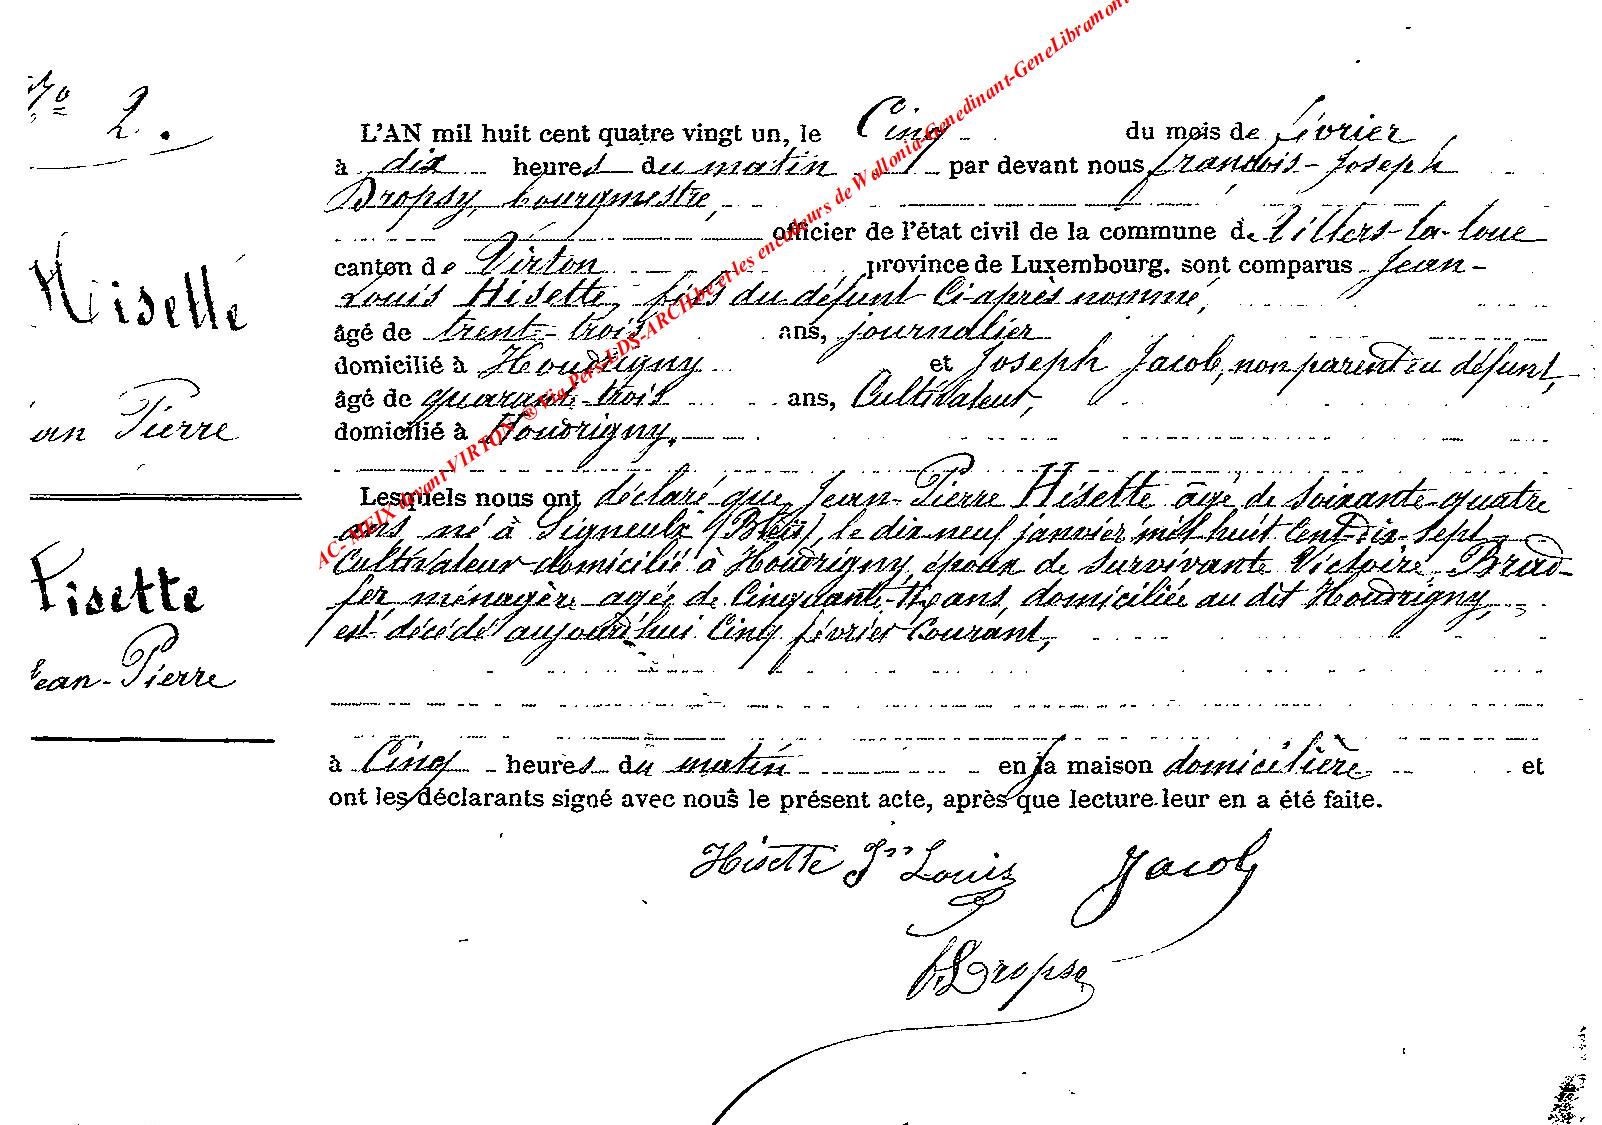 No 2.
L'AN mil huit cent quatre vingt un, le Cinq du mois de février
à dix heures du matin par devant nous françois-Joseph
Dropsy, bourgmestre,
officier de l'état civil de la commune de Villers-la-loue
canton de Virton province de Luxembourg. sont comparus Jean-
Louis Hisette, fils du défunt Ci-après nommé,
âgé de trente-trois ans, journalier
domicilié à Houdrigny et Joseph Jacob, non parent au défunt,
âgé de quarante-trois ans, Cultivateur,
domicilié à Houdrigny,
Lesquels nous ont déclaré que Jean-Pierre Hisette âgé de soixante-quatre
ans né à Signeulx (Bleid), le dix neuf janvier mil huit Cent-dix-sept
Cultivateur domicilié à Houdrigny, époux de survivante Victoire Brad-
fer ménagère agée de Cinquante- ans, domiciliée au dit Houdrigny,
est décédé aujourd'hui Cinq février Courant,
à Cinq heures du matin en sa maison domicilière et
ont les déclarants signé avec nous le présent acte, après que lecture leur en a été faite.
Hisette Jn Louis Jacob
Dropsy
Hisette
Jean Pierre
Hisette
Jean-Pierre
AC-MEIX devant VIRTON ® Via Pers LDS-ARCH.be et les encodeurs de Wallonia-Genedinant-GeneLibramont